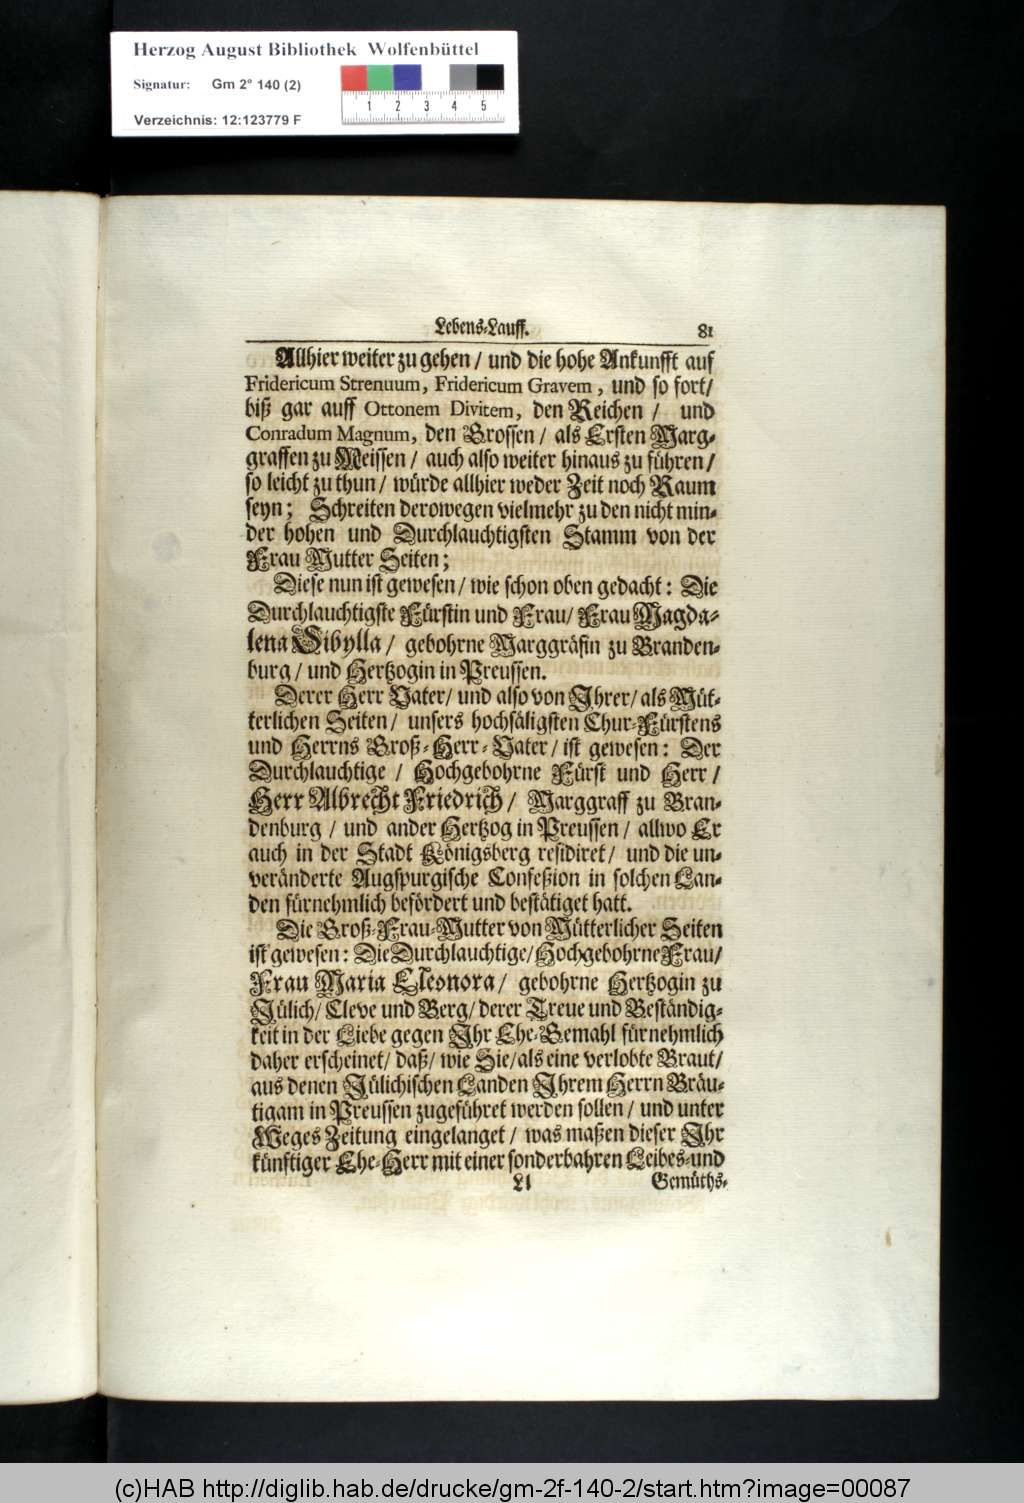 Herzog August Bibliothek Wolfenbüttel
Signatur: Gm 2° 140 (2)
1 2 3 4 5
Verzeichnis: 12:123779 F
Lebens-Lauff. 81
Allhier weiter zu gehen / und die hohe Ankunfft auf
Fridericum Strenuum, Fridericum Gravem, und so fort/
biß gar auff Ottonem Divitem, den Reichen / und
Conradum Magnum, den Grossen / als Ersten Marg-
graffen zu Meissen / auch also weiter hinaus zu führen/
so leicht zu thun / würde allhier weder Zeit noch Raum
seyn; Schreiten derowegen vielmehr zu den nicht min-
der hohen und Durchlauchtigsten Stamm von der
Frau Mutter Seiten;
Diese nun ist gewesen / wie schon oben gedacht: Die
Durchlauchtigste Fürstin und Frau/ Frau Magda-
lena Sibylla / gebohrne Marggräfin zu Branden-
burg / und Hertzogin in Preussen.
Derer Herr Vater/ und also von Ihrer/ als Müt-
terlichen Seiten / unsers hochsäligsten Chur-Fürstens
und Herrns Groß-Herr-Vater / ist gewesen: Der
Durchlauchtige / Hochgebohrne Fürst und Herr /
Herr Albrecht Friedrich / Marggraff zu Bran-
denburg / und ander Hertzog in Preussen / allwo Er
auch in der Stadt Königsberg residiret / und die un-
veränderte Augspurgische Confeßion in solchen Lan-
den fürnehmlich befördert und bestätiget hatt.
Die Groß-Frau-Mutter von Mütterlicher Seiten
ist gewesen: Die Durchlauchtige/ Hochgebohrne Frau/
Frau Maria Eleonora / gebohrne Hertzogin zu
Jülich/ Cleve und Berg/ derer Treue und Beständig-
keit in der Liebe gegen Ihr Ehe-Gemahl fürnehmlich
daher erscheinet/ daß/ wie Sie/ als eine verlobte Braut/
aus denen Jülichischen Landen Ihrem Herrn Bräu-
tigam in Preussen zugeführet werden sollen / und unter
Weges Zeitung eingelanget / was maßen dieser Ihr
künftiger Ehe-Herr mit einer sonderbahren Leibes- und
Ll Gemüths-
(c)HAB http://diglib.hab.de/drucke/gm-2f-140-2/start.htm?image=00087